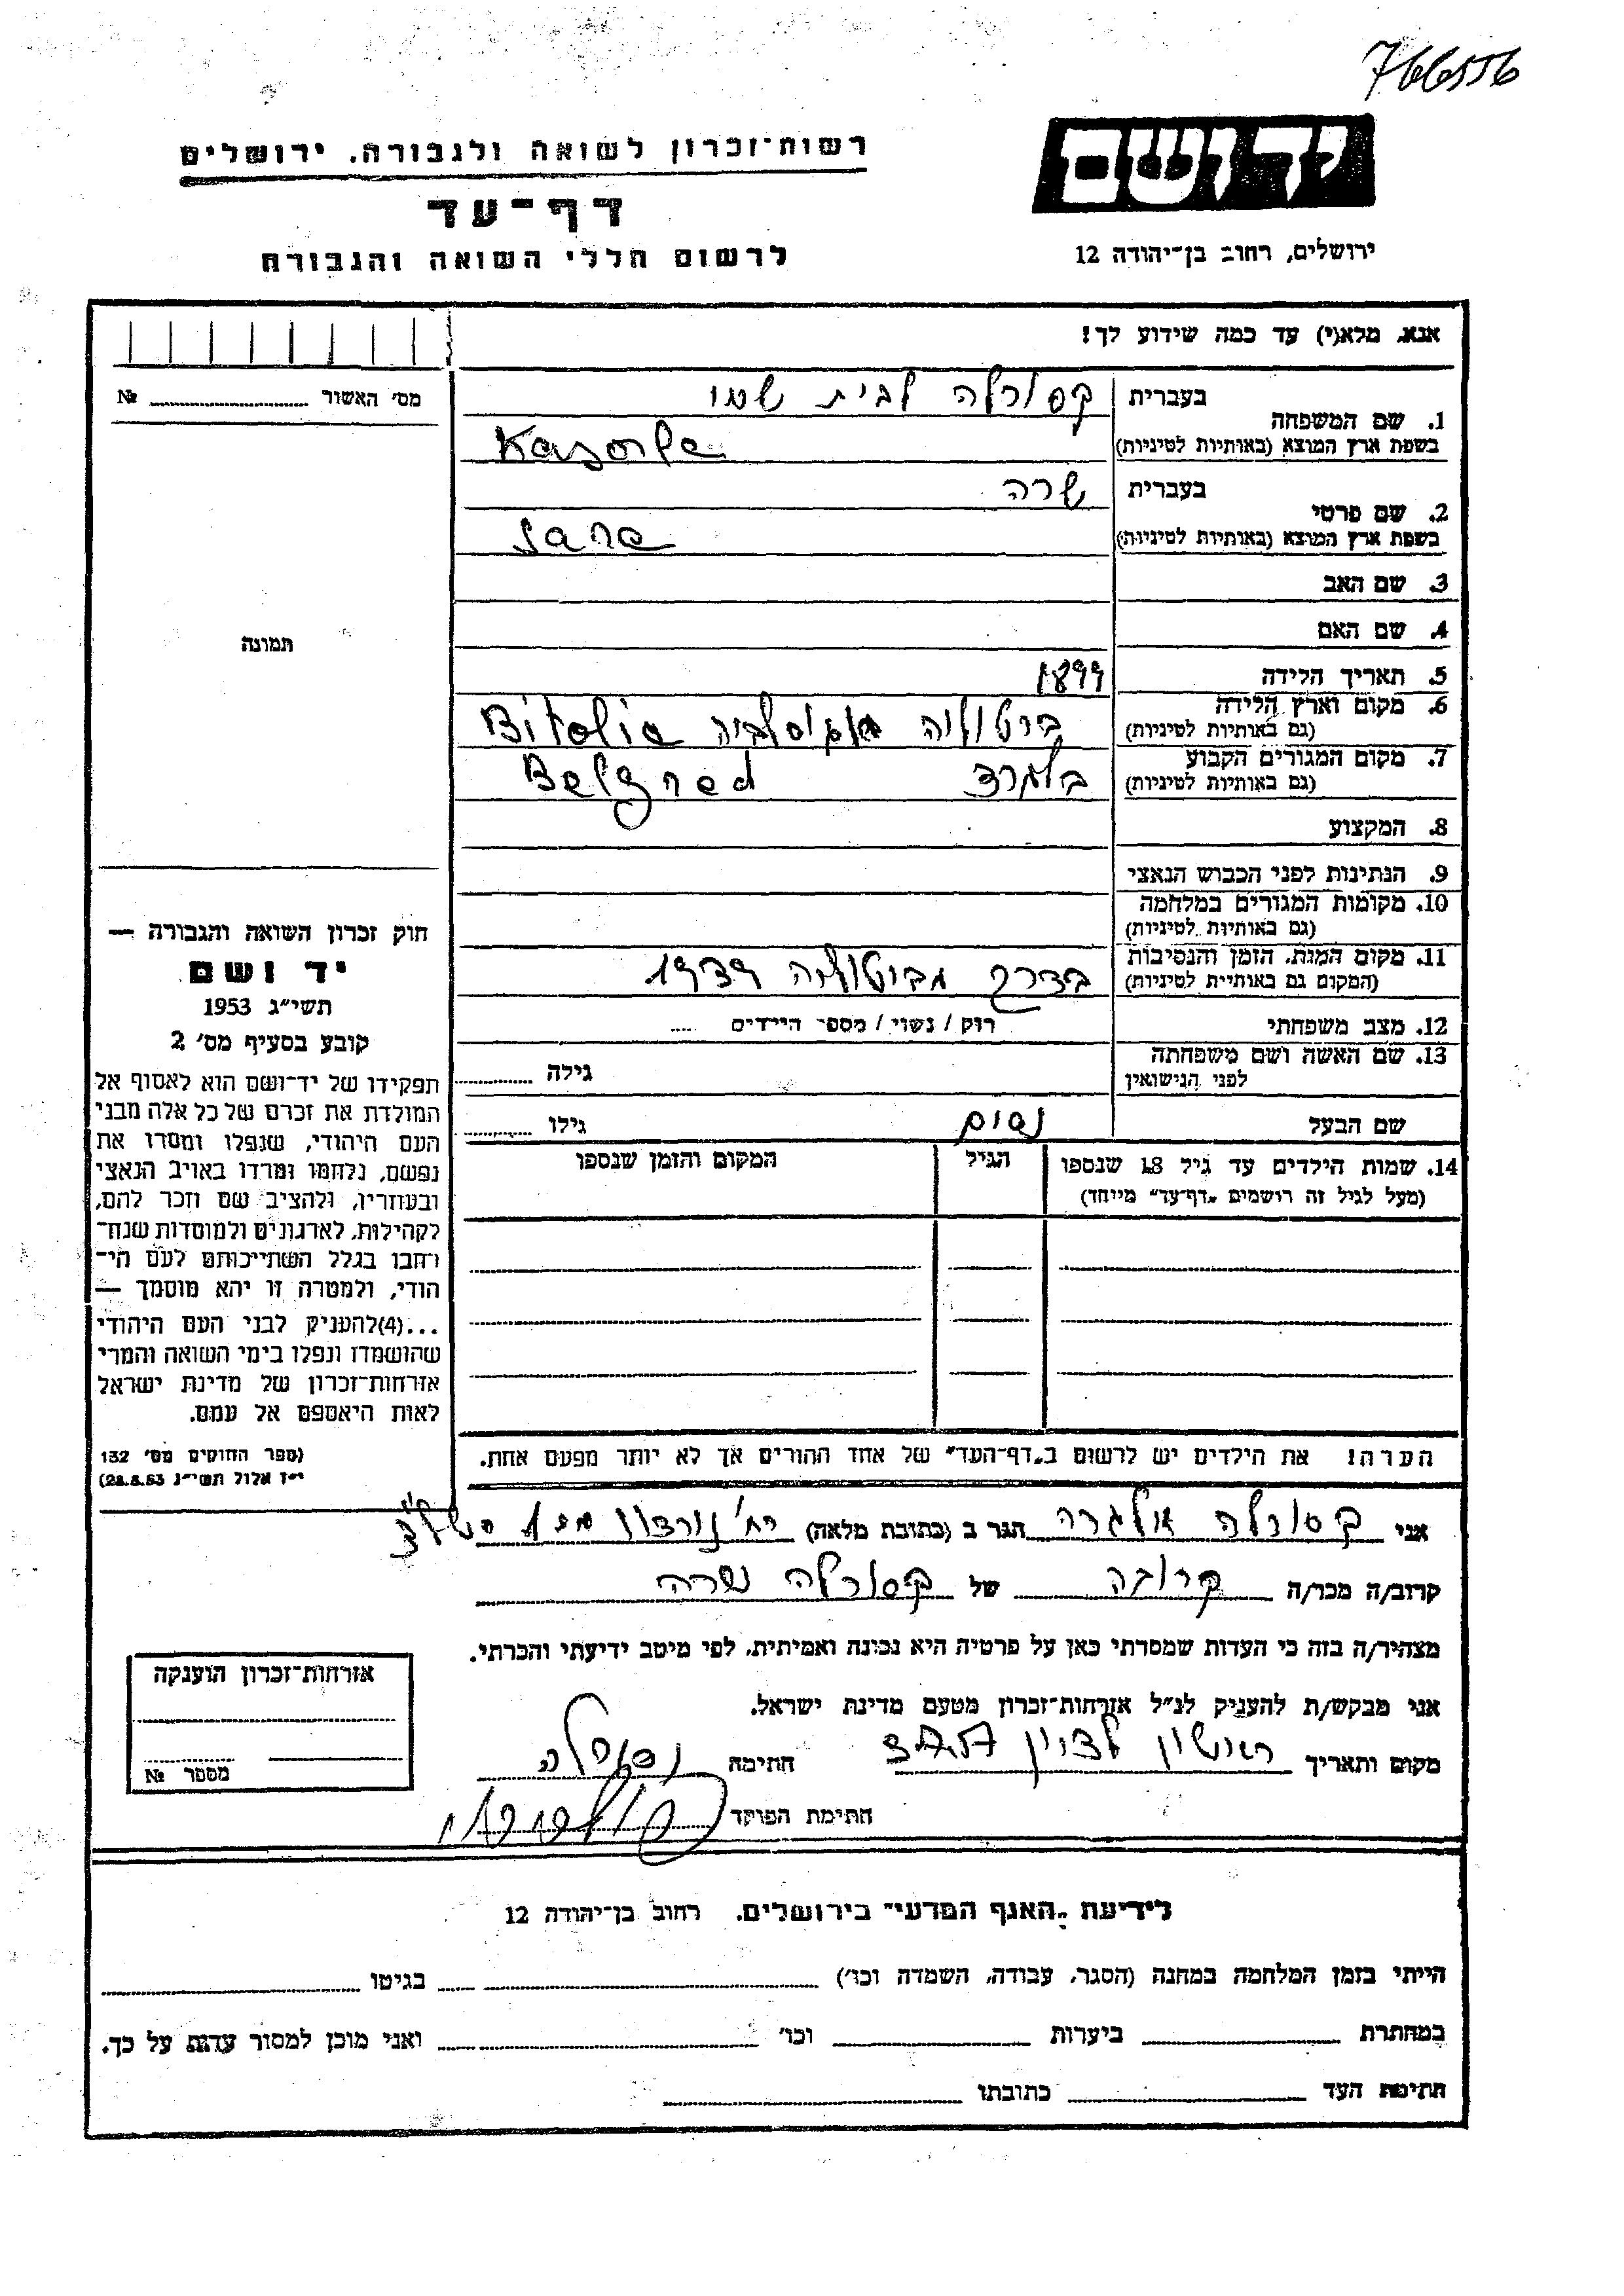 766556
יד ושם
רשות־זכרון לשואה ולגבורה, ירושלים
דף־עד
לרשום חללי השואה והגבורה
ירושלים, רחוב בן־יהודה 12
אנא, מלא(י) עד כמה שידוע לך!
מס׳ האשור № 
1. שם המשפחה בעברית קסורלה לבית
בשפת ארץ המוצא (באותיות לטיניות) Kasorla
2. שם פרטי בעברית שרה
בשפת ארץ המוצא (באותיות לטיניות) Sara
3. שם האב
4. שם האם
תמונה
5. תאריך הלידה 1899
6. מקום וארץ הלידה
(גם באותיות לטיניות) Bitolia
7. מקום המגורים הקבוע
(גם באותיות לטיניות) בלגרד Belgrad
8. המקצוע
9. הנתינות לפני הכבוש הנאצי
10. מקומות המגורים במלחמה
(גם באותיות לטיניות)
11. מקום המות, הזמן והנסיבות
(המקום גם באותיות לטיניות) בדרך מביטוליה 1939
12. מצב משפחתי רוק / נשוי / מספר הילדים ....
13. שם האשה ושם משפחתה
לפני הנישואין גילה
שם הבעל נסים גילו
14. שמות הילדים עד גיל 18 שנספו
(מעל לגיל זה רושמים „דף־עד״ מייחד)
הגיל
המקום והזמן שנספו
הערה! את הילדים יש לרשום ב„דף־העד״ של אחד ההורים אך לא יותר מפעם אחת.
חוק זכרון השואה והגבורה —
יד ושם
תשי״ג 1953
קובע בסעיף מס׳ 2
תפקידו של יד־ושם הוא לאסוף אל
המולדת את זכרם של כל אלה מבני
העם היהודי, שנפלו ומסרו את
נפשם, נלחמו ומרדו באויב הנאצי
ובעוזריו, ולהציב שם וזכר להם,
לקהילות, לארגונים ולמוסדות שנח־
רבו בגלל השתייכותם לעם הי־
הודי, ולמטרה זו יהא מוסמך —
...(4)להעניק לבני העם היהודי
שהושמדו ונפלו בימי השואה והמרי
אזרחות־זכרון של מדינת ישראל
לאות היאספם אל עמם.
(ספר החוקים מס׳ 132
י״ז אלול תשי״ג 28.8.53)
אני קסורלה אלגרה הגר ב (כתובת מלאה) רח׳ נורדאו
קרוב/ה מכר/ה קרובה של קסורלה שרה
מצהיר/ה בזה כי העדות שמסרתי כאן על פרטיה היא נכונה ואמיתית, לפי מיטב ידיעתי והכרתי.
אני מבקש/ת להעניק לנ״ל אזרחות־זכרון מטעם מדינת ישראל.
מקום ותאריך ראשון לציון חתימה קסורלה
חתימת הפוקד
אזרחות־זכרון הוענקה
מספר №
לידיעת „האגף המדעי״ בירושלים, רחוב בן־יהודה 12
הייתי בזמן המלחמה במחנה (הסגר, עבודה, השמדה וכו׳) בגיטו
במחתרת ביערות וכו׳ ואני מוכן למסור עדות על כך.
חתימת העד כתובתו